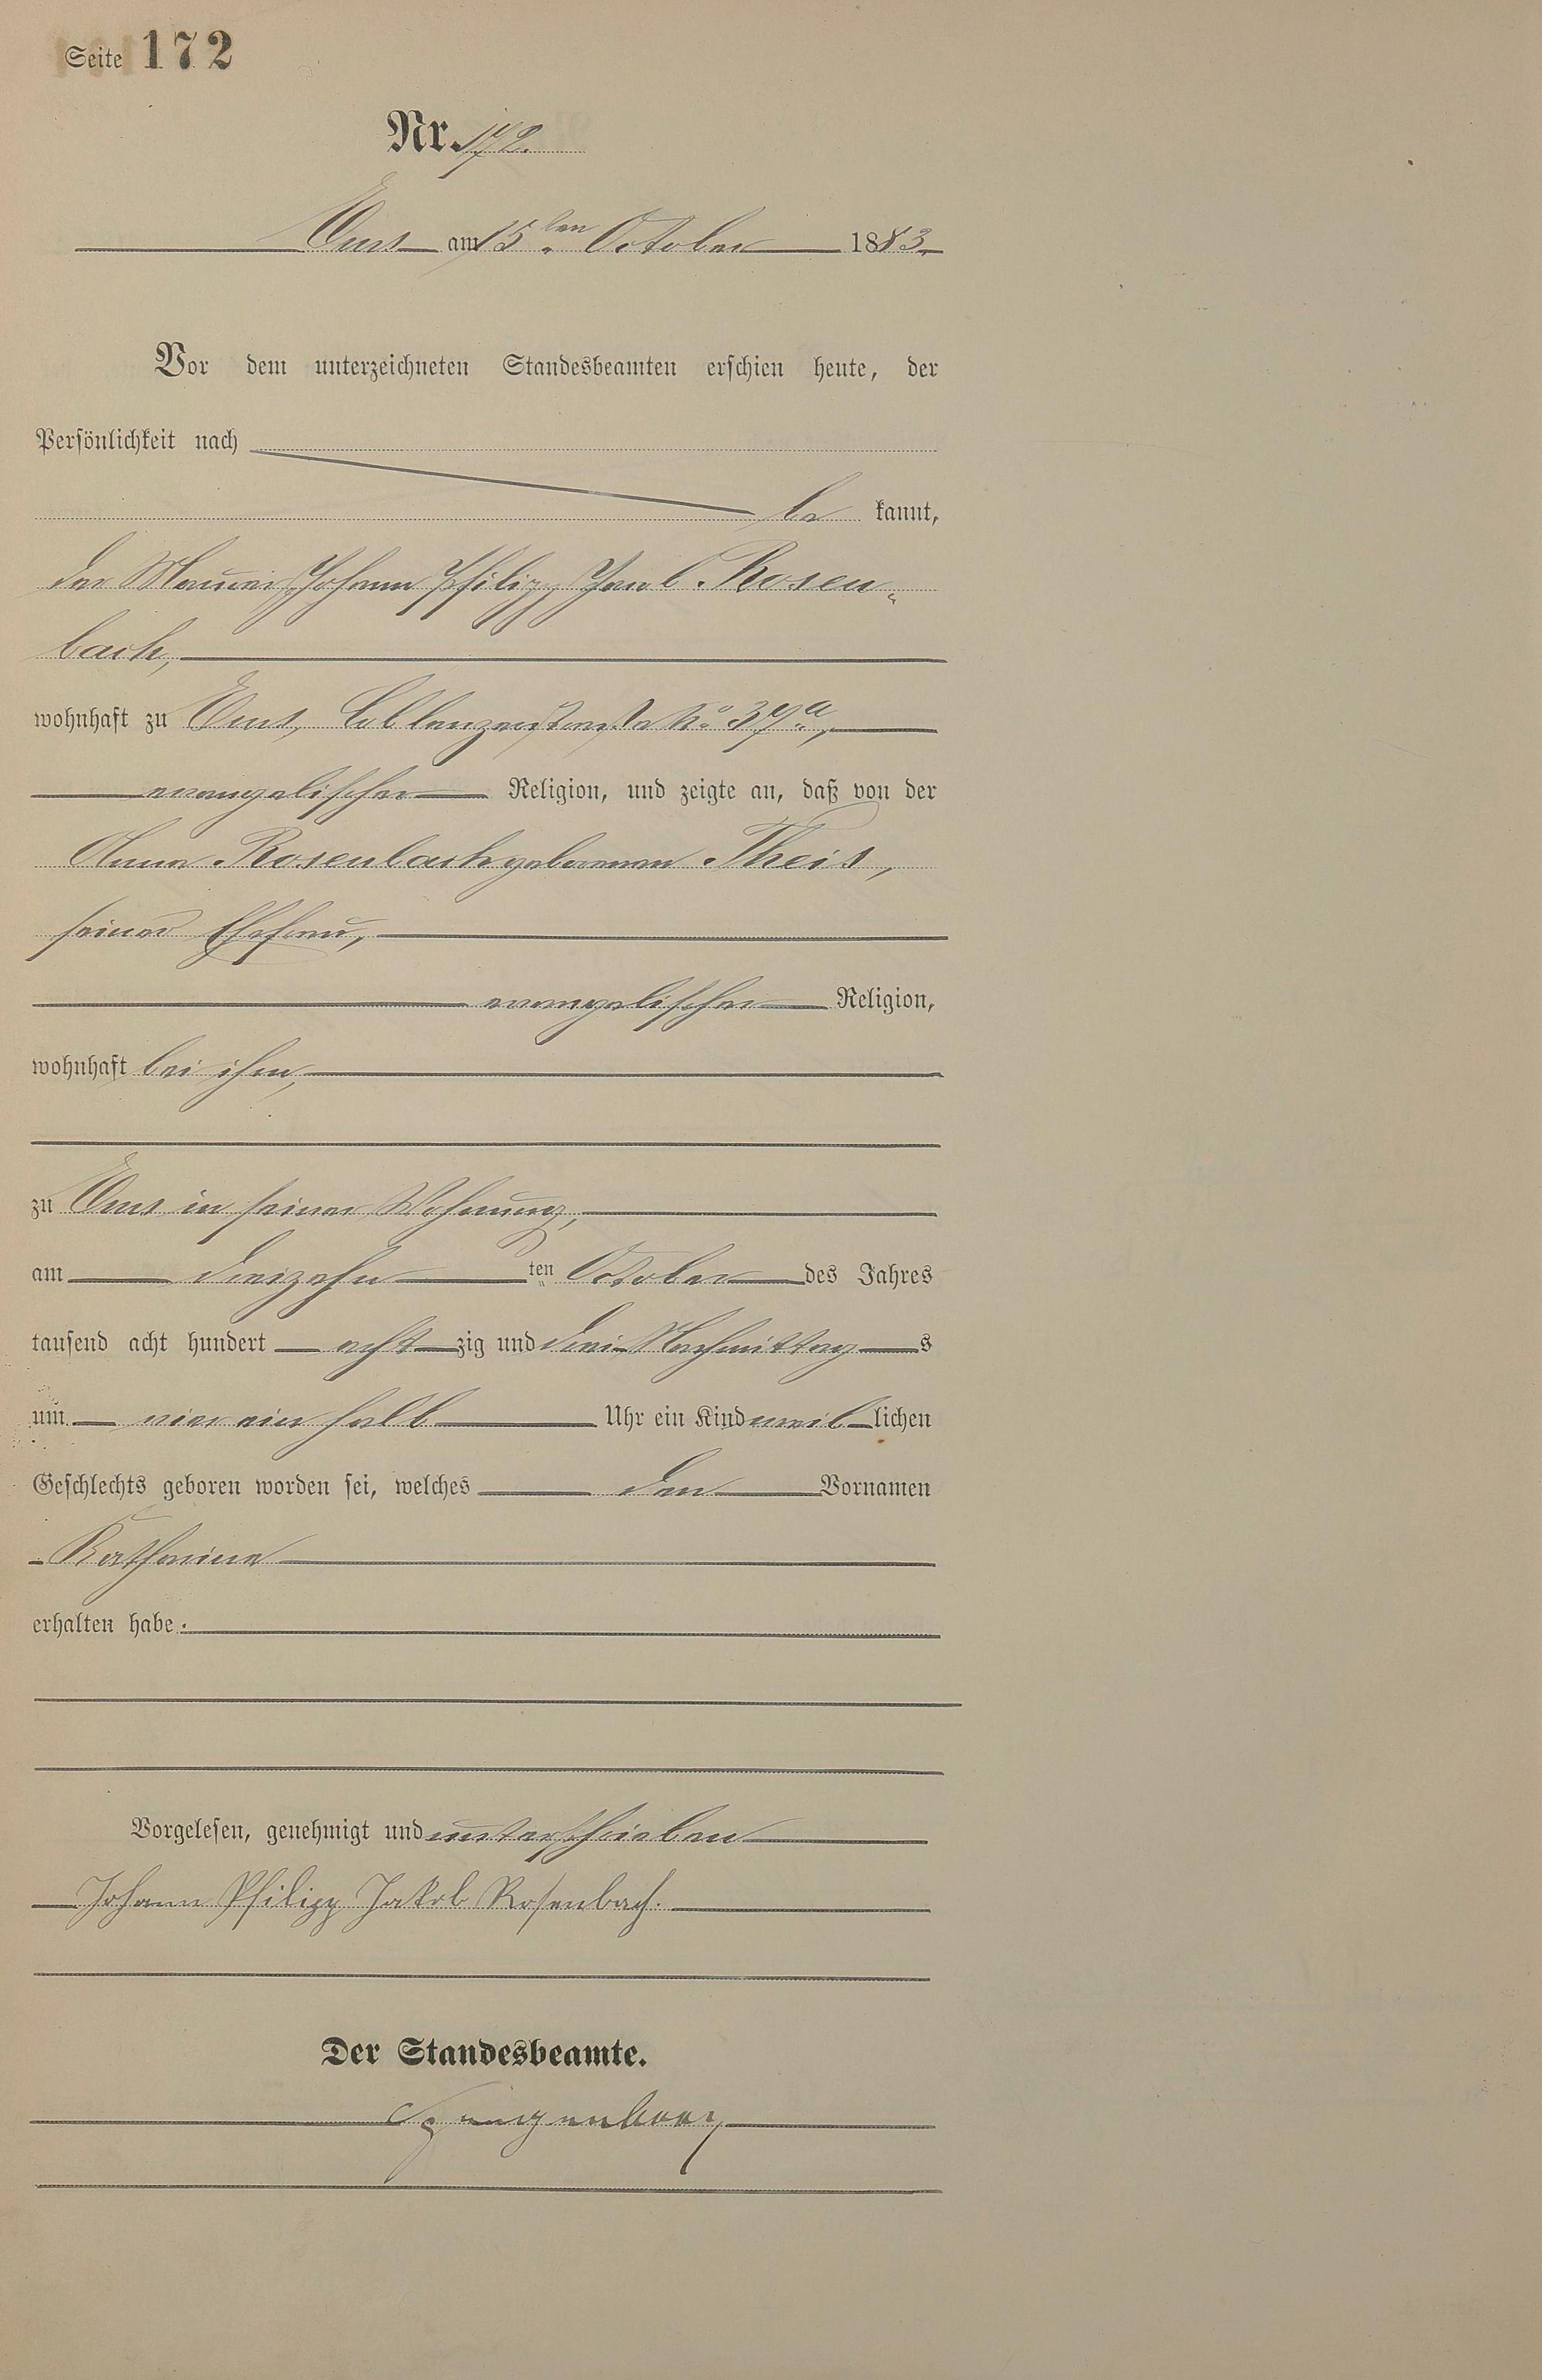 Seite 172
Nr. 172.
Ems am 15ten October 1883.
Vor dem unterzeichneten Standesbeamten erschien heute, der
Persönlichkeit nach
be kannt,
der Maurer Johann Philipp Rosen-
bach,
wohnhaft zu Ems, Coblenzerstraße No 37a,
evangelischer Religion, und zeigte an, daß von der
Anna Rosenbach geborenen Theis,
seiner Ehefrau,
evangelischer Religion,
wohnhaft bei ihm,
zu Ems in seiner Wohnung,
am dreizehn ten October des Jahres
tausend acht hundert acht zig und drei Nachmittag s
um vier ein halb Uhr ein Kind weib lichen
Geschlechts geboren worden sei, welches den Vornamen
Katharina
erhalten habe.
Vorgelesen, genehmigt und unterschrieben
Johann Philipp Jakob Rosenbach.
Der Standesbeamte.